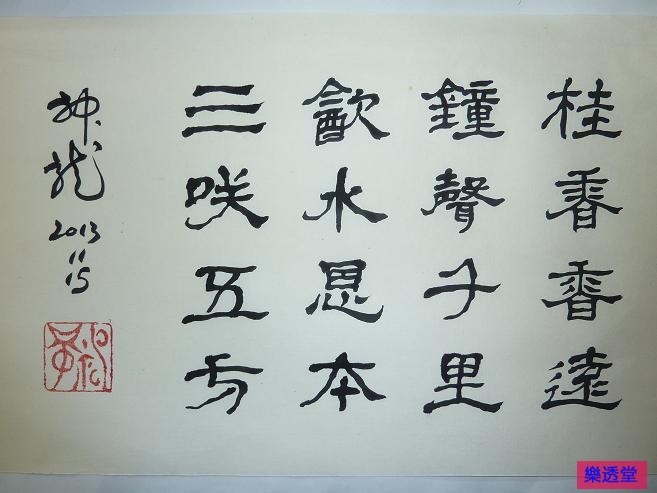 桂香香遠
鐘聲千里
歠水思本
三咲五方
神龍
2013
11
15
樂透堂